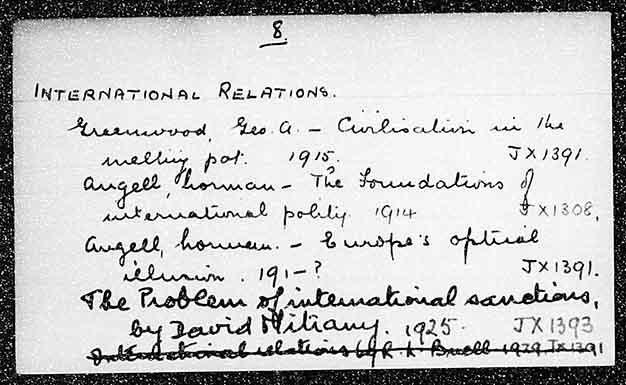 8
INTERNATIONAL RELATIONS.
Greenwood, Geo. A. – Civilisation in the
melting pot. 1915. JX1391.
Angell, Norman – The Foundations of
international polity. 1914 JX1308.
Angell, Norman. – Europe's optical
illusion. 191–? JX1391.
The Problem of international sanctions,
by David Mitrany. 1925. JX1393
International relations by R. L. Buell 1929 JX1391